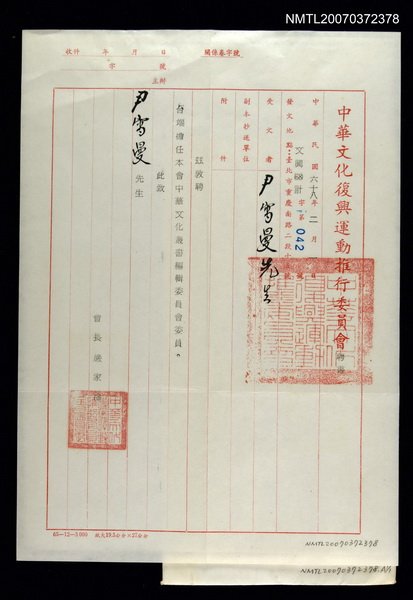 NMTL20070372378
收件 年 月 日
字 號
主辦
關係卷字號
中華文化復興運動推行委員會
中華民國六十八年二月一日
文興 字第 042 號
發文地點:臺北市重慶南路二段十五號
受文者 尹雪曼先生
副本抄送單位
附件
茲敦聘
台端擔任本會中華文化叢書編輯委員會委員。
此致
尹雪曼 先生
會長 嚴家淦
65-12-5000 紙大19.5公分×27公分
NMTL20070372378
NMTL20070372378.A1/1